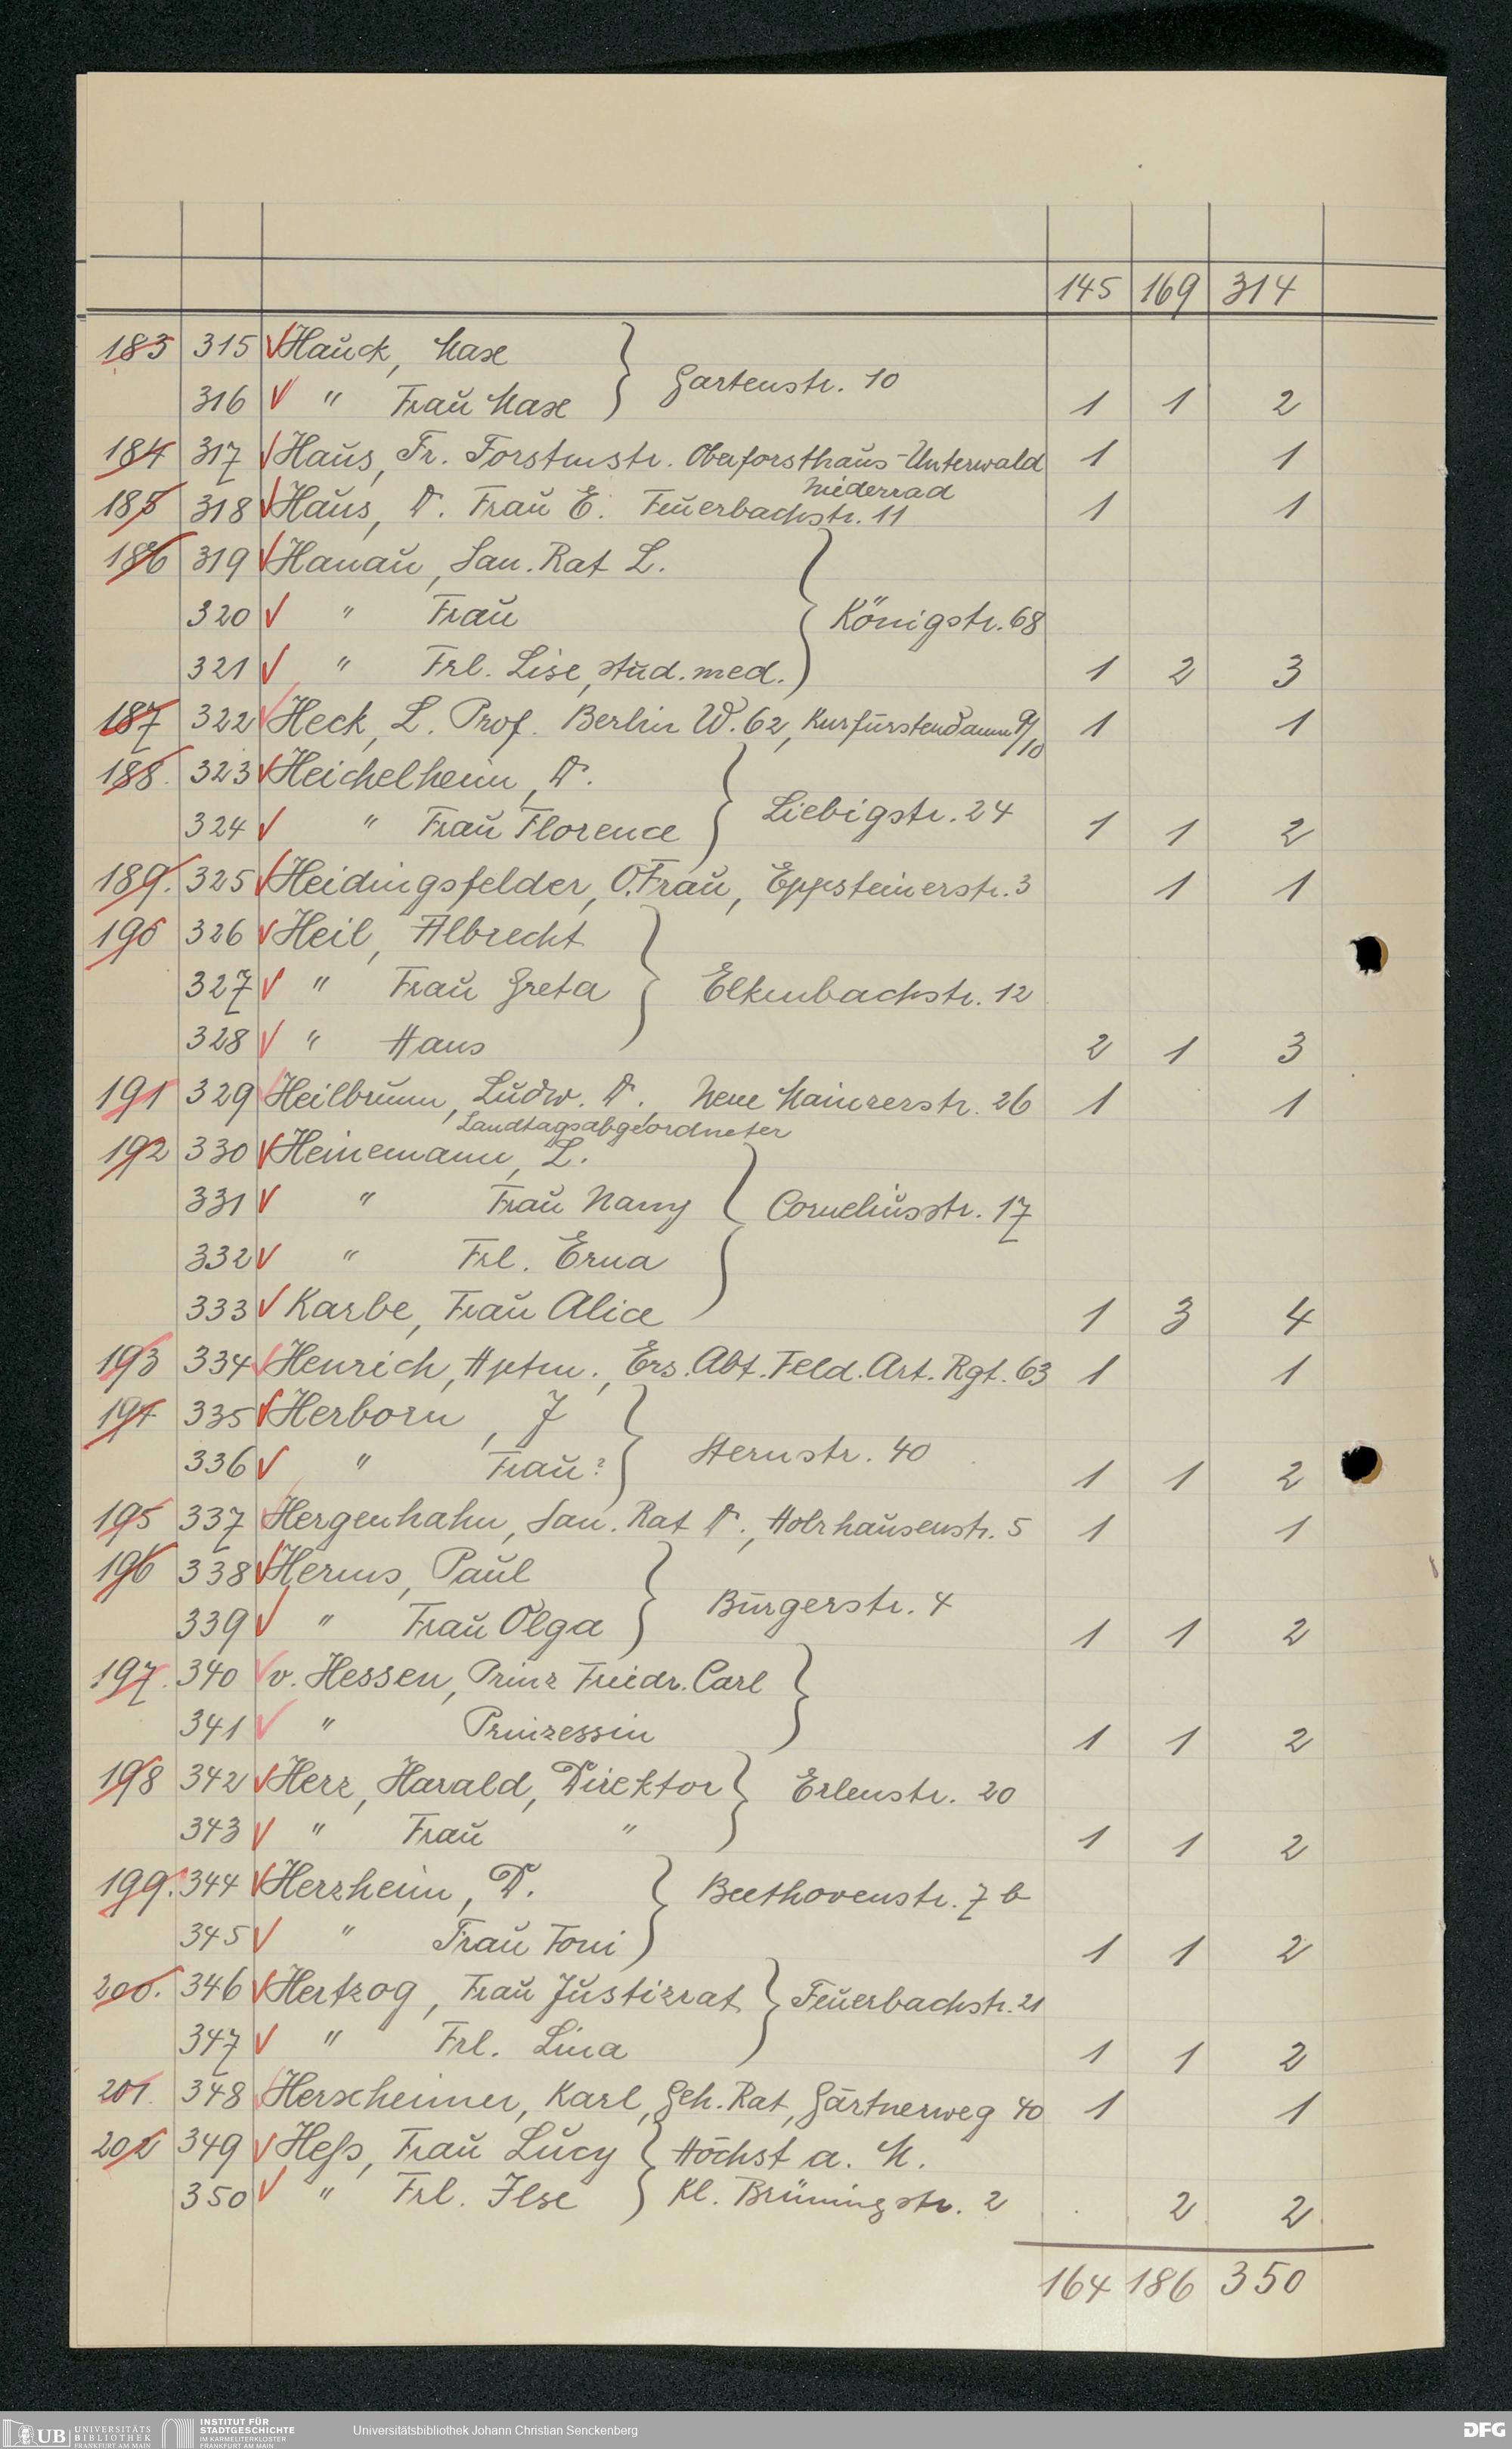 145 169 314
183 315 Hauck, Max
Gartenstr. 10
316 " Frau Max 1 1 2
184 317 Haus, Fr. Forstmstr. Oberforsthaus-Unterwald 1 1
Niederrad
185 318 Haus, Dr. Frau E. Feuerbachstr. 11 1 1
186 319 Hanau, San. Rat L.
320 " Frau Königstr. 68
321 " Frl. Lise, stud. med. 1 2 3
187 322 Heck, L. Prof. Berlin W. 62, Kurfürstendamm 9/10 1 1
188. 323 Heichelheim, Dr.
Liebigstr. 24
324 " Frau Florence 1 1 2
189. 325 Heidingsfelder, O. Frau, Eppsteinerstr. 3 1 1
190 326 Heil, Albrecht
327 " Frau Greta Elkenbachstr. 12
328 " Hans 2 1 3
191 329 Heilbrunn, Ludw. Dr., Neue Mainzerstr. 26 1 1
Landtagsabgeordneter
192 330 Heinemann, L.
331 " Frau Nanny Corneliusstr. 17
332 " Frl. Erna
333 Karbe, Frau Alice 1 3 4
193 334 Henrich, Hptm., Ers. Abt. Feld. Art. Rgt. 63 1 1
194 335 Herborn, J
Sternstr. 40
336 " Frau? 1 1 2
195 337 Hergenhahn, San. Rat Dr., Holzhausenstr. 5 1 1
196 338 Herms, Paul
Bürgerstr. 4
339 " Frau Olga 1 1 2
197. 340 v. Hessen, Prinz Friedr. Carl
341 " Prinzessin 1 1 2
198 342 Herz, Harald, Direktor Erlenstr. 20
343 " Frau " 1 1 2
199. 344 Herxheim, Dr. Beethovenstr. 7 b
345 " Frau Toni 1 1 2
200. 346 Hertzog, Frau Justizrat Feuerbachstr. 21
347 " Frl. Lina 1 1 2
201. 348 Herxheimer, Karl, Geh. Rat, Gärtnerweg 40 1 1
202 349 Heß, Frau Lucy Höchst a. M.
350 " Frl. Ilse Kl. Brüningstr. 2 2 2
164 186 350
UB UNIVERSITÄTS
BIBLIOTHEK
FRANKFURT AM MAIN
INSTITUT FÜR
STADTGESCHICHTE
IM KARMELITERKLOSTER
FRANKFURT AM MAIN
Universitätsbibliothek Johann Christian Senckenberg
DFG